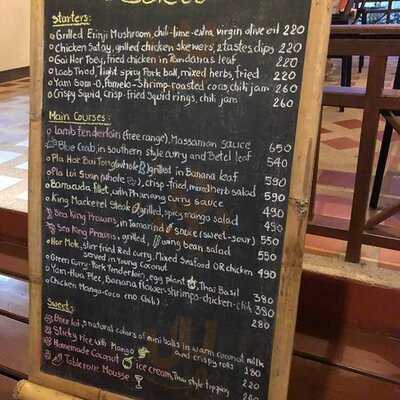 Starters:
Grilled Erinji Mushroom, chili-lime-extra virgin olive oil 220
Chicken Satay, grilled chicken skewers, 2 tastes dips 220
Gai Hor Toey, fried chicken in Pandanas leaf 220
Laab Thod, light spicy Pork ball, mixed herbs, fried 220
Yam Som-O, Pomelo-Shrimp-roasted coco, chili jam 260
Crispy Squid, crisp-fried Squid rings, chili jam 260
Main Courses:
Lamb tenderloin (free range), Massaman Sauce 650
Blue Crab, in southern style curry and Betel leaf 540
Pla Hor Bai Tong (whole) grilled in Banana leaf 590
Pla Lui Suan (whole), crisp-fried, mixed herb salad 590
Barracuda fillet, with Phanang curry sauce 490
King Mackerel Steak grilled, spicy mango salad 490
Sea King Prawns, in Tamarind sauce (sweet-sour) 550
Sea King Prawns, grilled, wing bean salad 550
Hor Mok, stir fried Red curry, Mixed Seafood OR chicken 490
served in Young Coconut
Green Curry-Pork Tenderloin, egg plant, Thai Basil 380
Yam-Hua Plee, Banana flower-shrimps-chicken-chili 380
Chicken Mango-coco (no Chili) 280
Sweet:
3 natural colours of mini balls in warm coconut milk
Sticky rice with Mango and crispy rolls 180
Homemade Coconut ice cream, Thai style topping 220
Mousse